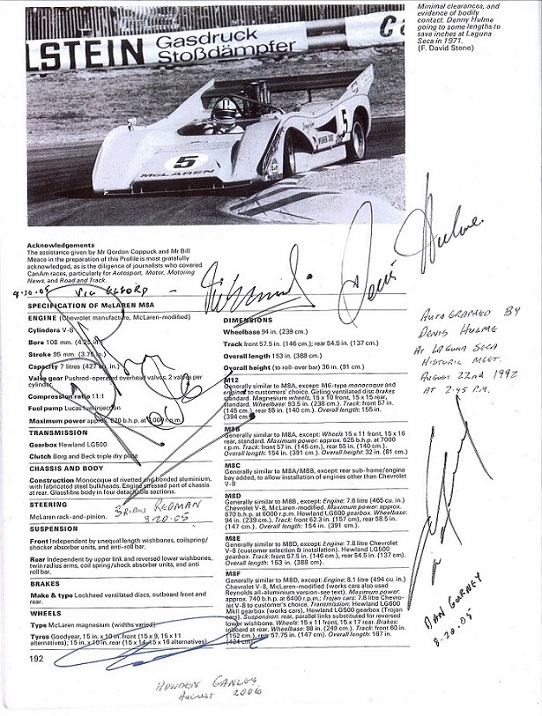 LSTEIN Gasdruck
Stoßdämpfer
5
McLAREN
5
Minimal clearances, and
evidence of bodily
contact. Denny Hulme
going to some lengths to
save inches at Laguna
Seca in 1971.
(F. David Stone)
Acknowledgements
The assistance given by Mr Gordon Coppuck and Mr Bill
Meace in the preparation of this Profile is most gratefully
acknowledged, as is the diligence of journalists who covered
CanAm races, particularly for Autosport, Motor, Motoring
News, and Road and Track.
Denis Hulme
VIC ELFORD
SPECIFICATION OF McLAREN M8A
ENGINE (Chevrolet manufacture, McLaren-modified)
Cylinders V-8
Bore 108 mm.
Stroke 95 mm.
Capacity 7 litres
Valve gear Pushrod-operated overhead valves, 2 valves per
cylinder.
Compression ratio 11:1
Fuel pump Lucas fuel injection
Maximum power approx. 620 b.h.p. at 7000 r.p.m.
TRANSMISSION
Gearbox Hewland LG500
Clutch Borg and Beck triple dry plate
CHASSIS AND BODY
Construction Monocoque of riveted and bonded aluminium,
with fabricated steel bulkheads. Engine stressed part of chassis
at rear. Glassfibre body in four detachable sections.
STEERING
McLaren rack-and-pinion.
BRIAN REDMAN
8-20-05
SUSPENSION
Front Independent by unequal length wishbones, coilspring/
shocker absorber units, and anti-roll bar.
Rear Independent by upper link and reversed lower wishbones,
twin radius arms, coil spring/shock absorber units, and anti
roll bar.
BRAKES
Make & type Lockheed ventilated discs, outboard front and
rear.
WHEELS
Type McLaren magnesium (widths varied)
Tyres Goodyear, 15 in. x 10 in. front (15 x 9, 15 x 11
alternatives); 15 in. x 10 in. rear (15 x 14, 15 x 16 alternatives).
192
DIMENSIONS
Wheelbase 94 in. (239 cm.)
Track front 57.5 in. (146 cm.); rear 54.5 in. (137 cm.)
Overall length 153 in. (388 cm.)
Height (to roll-over bar) 36 in. (91 cm.)
M12
Generally similar to M8A, except M6-type monocoque and
engined to customer's choice. Girling ventilated disc brakes
standard. Magnesium wheels, 15 x 10 front, 15 x 15 rear,
standard. Wheelbase: 93.5 in. (238 cm.). Track: front 57 in.
(145 cm.), rear 55 in. (140 cm.). Overall length: 155 in.
(394 cm.)
M8B
Generally similar to M8A, except: Wheels 15 x 11 front, 15 x 16
rear, standard. Maximum power: approx. 625 b.h.p. at 7000
r.p.m. Track: front 57 in. (145 cm.), rear 55 in. (140 cm.).
Overall length: 154 in. (391 cm.). Overall height: 32 in. (81 cm.)
M8C
Generally similar to M8A/M8B, except rear sub-frame/engine
bay added, to allow installation of engines other than Chevrolet
V-8
M8D
Generally similar to M8B, except: Engine: 7.6 litre (465 cu. in.)
Chevrolet V-8, McLaren modified. Maximum power: approx.
670 b.h.p. at 6000 r.p.m. Hewland LG600 gearbox. Wheelbase:
94 in. (239 cm.). Track: front 62.3 in. (157 cm.), rear 58.5 in.
(147 cm.). Overall length: 154 in. (391 cm.).
M8E
Generally similar to M8B, except: Engine: 7.8 litre Chevrolet
V-8 (customer selection & installation). Hewland LG500
gearbox. Track: front 57.5 in. (146 cm.), rear 54.5 in. (137 cm.).
Overall length: 153 in. (388 cm.)
M8F
Generally similar to M8D, except: Engine: 8.1 litre (494 cu. in.)
Chevrolet V-8, McLaren modified (works cars also used
Reynolds all-aluminium version-see text). Maximum power:
approx. 740 b.h.p. at 6400 r.p.m.; Trojan cars: 7.8 litre Chevro-
let V-8 to customer's choice. Transmission: Hewland LG600
MkII gearbox (works cars), Hewland LG500 gearbox (Trojan
cars). Suspension: rear, parallel links substituted for reversed
lower wishbone. Wheels: 15 x 11 front, 15 x 17 rear. Brakes:
inboard at rear. Wheelbase: 98 in. (249 cm.). Track: front 60 in.
(152 cm.), rear 57.75 in. (147 cm.). Overall length: 167 in.
(424 cm.)
AUTOGRAPHED BY
DENIS HULME
AT LAGUNA SECA
HISTORIC MEET.
AUGUST 22nd 1992
AT 2:45 P.M.
DAN GURNEY
8-20-05
HOWDEN GANLEY
AUGUST 2006